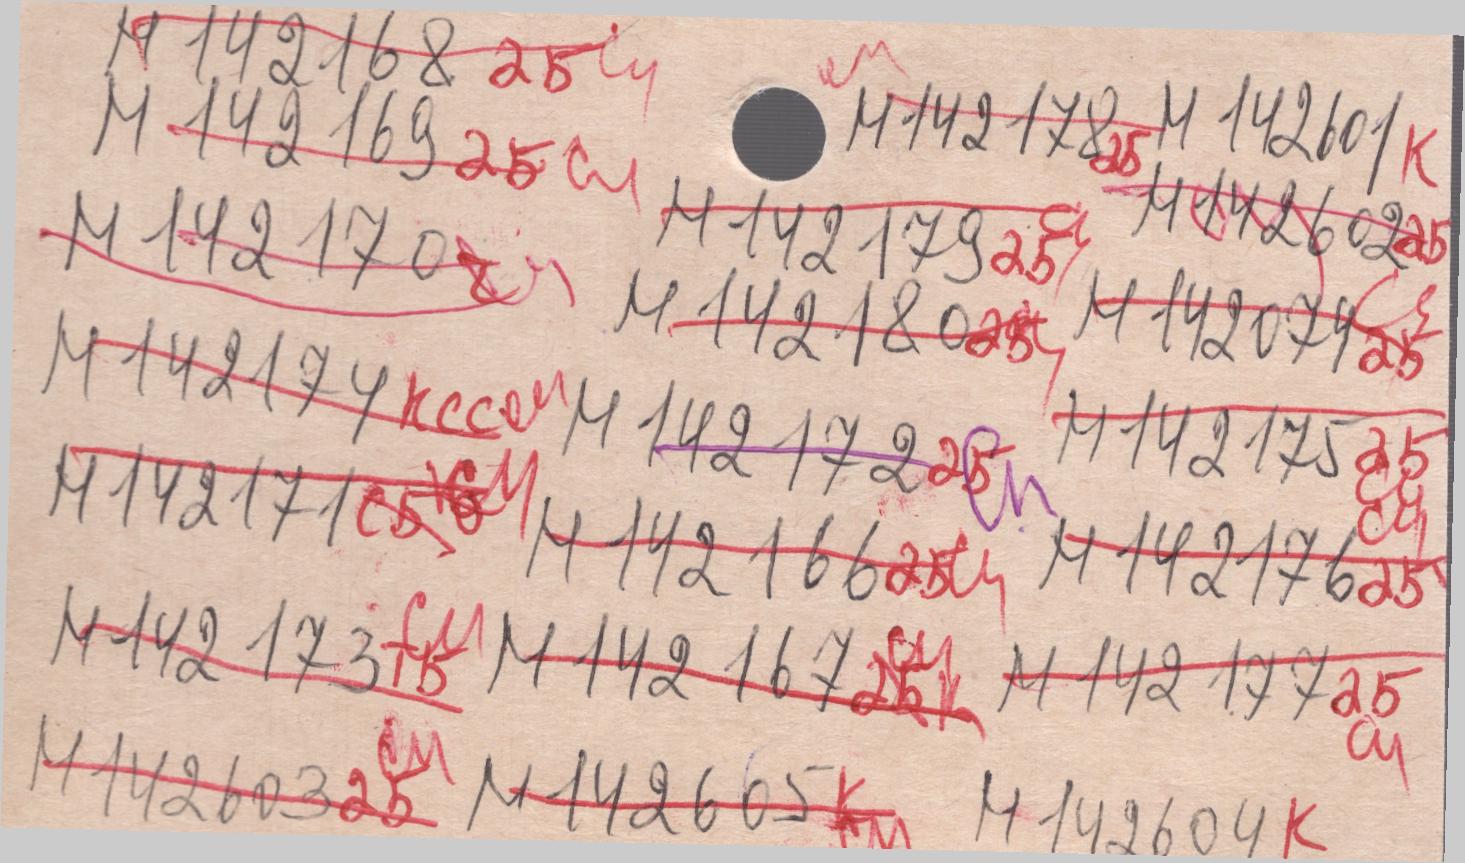 М 142168 25 См
М 142169 25 См
М 142170 См
М 142174 КССОМ
М 142171
М 142173 См
М 142603 25 См
М 142178 25 см
М 142179 25 См
М 142180 25 См
М 142172 25 См
М 142166 25 См
М 142167 25 См
М 142605 К См
М 142601 К
М 142602 25
М 142074 25 См
М 142175 25 См
М 142176 25 См
М 142177 25 См
М 142604 К